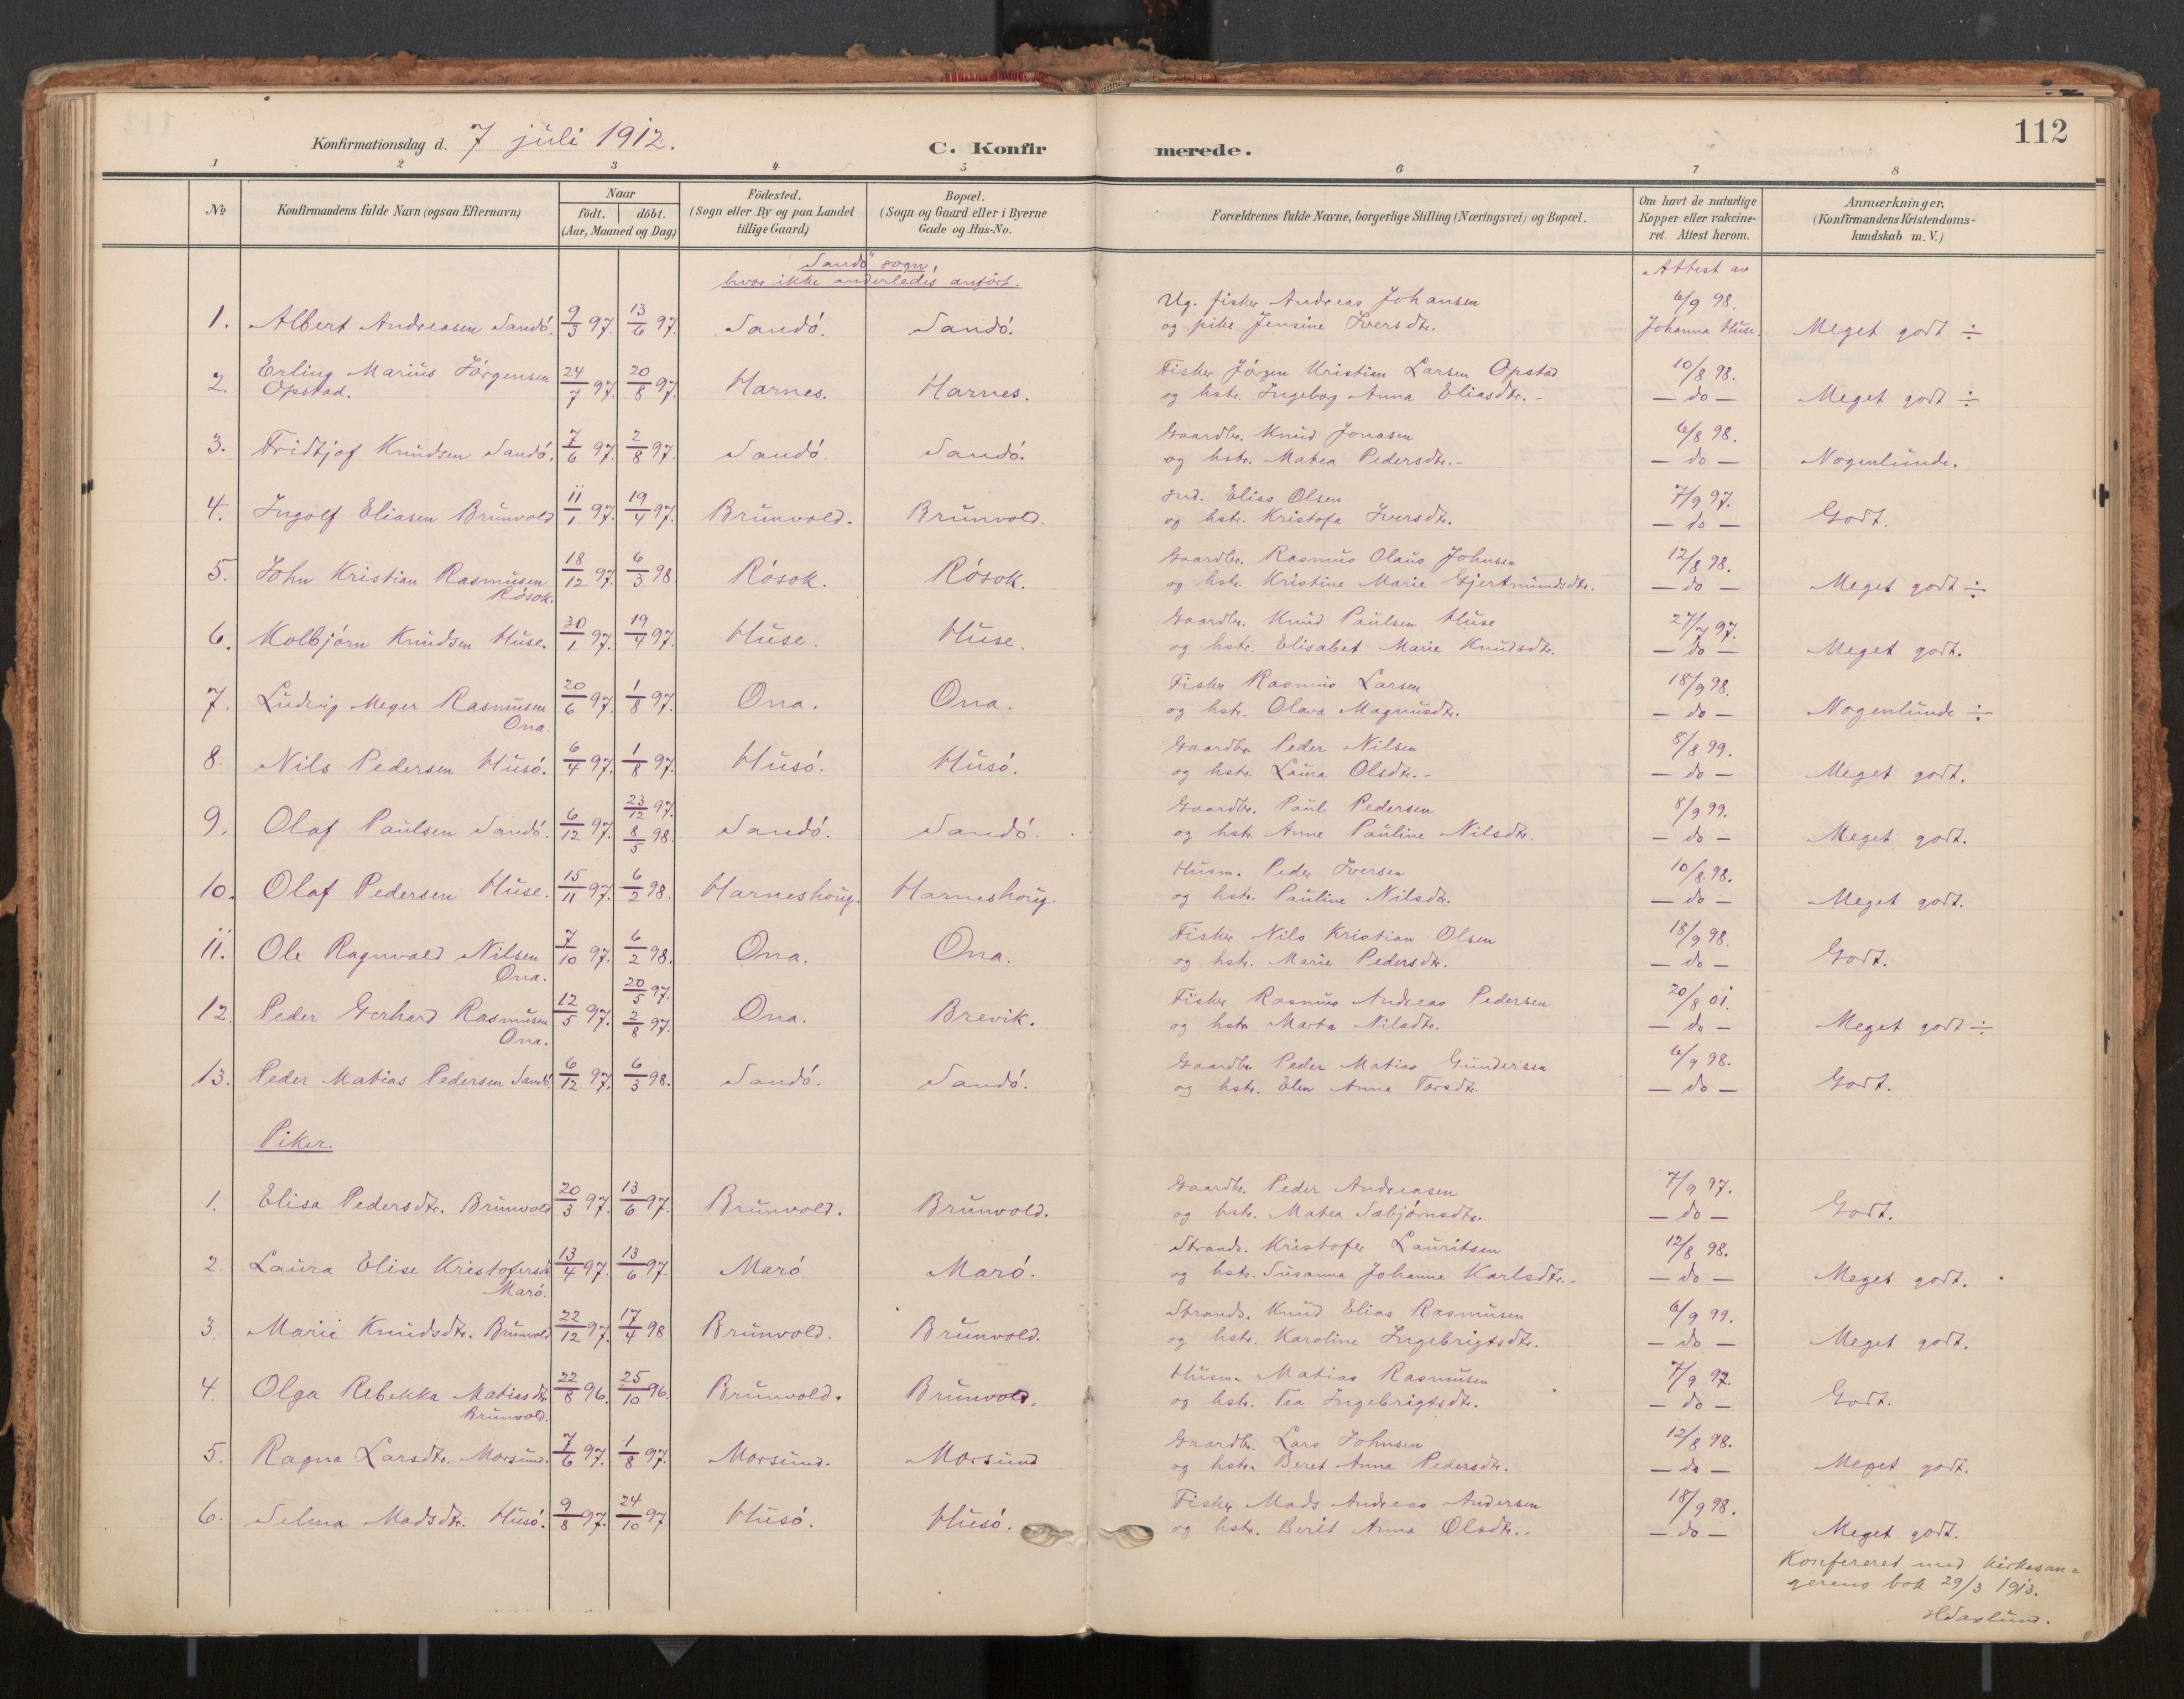 112
Konfirmationsdag d. 7 juli 1912.
C. Konfirmerede.
1 2 3 4 5 6 7 8
No
Konfirmandens fulde Navn (ogsaa Efternavn)
Naar
födt. döbt.
(Aar, Maaned og Dag)
Födested.
(Sogn eller By og paa Landet
tillige Gaard)
Bopæl.
(Sogn og Gaard eller i Byerne
Gade og Hus-No.
Forældrenes fulde Navne, borgerlige Stilling (Næringsvei) og Bopæl.
Om havt de naturlige
Kopper eller vakcine-
ret. Attest herom.
Anmærkninger,
(Konfirmandens Kristendoms-
kundskab m. V.)
Sandö sogn,
hvor ikke anderledes anført.
Attest av
1. Albert Andreasen Sandó. 9/3 97. 13/6 97. Sandó. Sandó. Ug. fisker Andreas Johansen 6/9 98.
og pike Jensine Iversdtr. Johanna Huse. Meget godt ÷
2. Erling Marius Jørgensen 24/7 97. 20/8 97. Harnes. Harnes. Fisker Jørgen Kristian Larsen Opstad 10/8 98.
Opstad. og hstr. Ingebog Anna Eliasdtr. - — do — Meget godt ÷
3. Fridtjof Knudsen Sandó. 7/6 97. 2/8 97. Sandó. Sandó. Gaardbr. Knud Jonasen 6/8 98.
og hstr. Matea Pedersdtr. - — do — Nogenlunde.
4. Ingolf Eliasen Brunvold 11/1 97. 19/4 97. Brunvold. Brunvold. Ind. Elias Olsen 7/9 97.
og hstr. Kristofa Iversdtr. — do — Godt.
5. John Kristian Rasmusen 18/12 97. 6/3 98 Rósok. Rósok. Gaardbr. Rasmus Olaus Johnsen 12/8 98.
Rósok. og hstr. Kristine Marie Gjertmundsdtr. — do — Meget godt ÷
6. Kolbjørn Knudsen Huse. 30/1 97. 19/4 97. Huse. Huse. Gaardbr. Knud Paulsen Huse 27/7 97.
og hstr. Elisabet Marie Knudsdtr. — do — Meget godt.
7. Ludvig Meyer Rasmusen 20/6 97. 1/8 97. Ona. Ona. Fisker Rasmus Larsen 18/9 98.
Ona. og hstr. Olava Magnusdtr. — do — Nogenlunde ÷
8. Nils Pedersen Husó. 6/4 97. 1/8 97. Husó. Husó. Gaardbr. Peder Nilsen 8/8 99.
og hstr. Laura Olsdtr. - — do — Meget godt.
9. Olaf Paulsen Sandó. 6/12 97. 23/12 97. 8/5 98. Sandó. Sandó. Gaardbr. Paul Pedersen 8/9 99.
og hstr. Anne Pauline Nilsdtr. — do — Meget godt.
10. Olaf Pedersen Huse. 15/11 97. 6/2 98. Harneshoug. Harneshoug. Husm. Peder Iversen 10/8. 98.
og hstr. Pauline Nilsdtr. — do — Meget godt.
11. Ole Ragnvald Nilsen 7/10 97. 6/2 98. Ona. Ona. Fisker Nils Kristian Olsen 18/9 98.
Ona. og hstr. Marie Pedersdtr. — do — Godt.
12. Peder Gerhard Rasmusen 12/5 97. 20/5 97. 2/8 97. Ona. Brevik. Fisker Rasmus Andreas Pedersen 20/8 01.
Ona. og hstr. Marta Nilsdtr. — do — Meget godt ÷
13. Peder Matias Pedersen Sandó 6/12 97. 6/3 98. Sandó. Sandó. Gaardbr Peder Matias Gundersen 6/9 98.
og hstr. Elen Anna Torsdtr. — do — Godt.
Piker.
1. Elisa Pedersdtr. Brunvold 20/3 97. 13/6 97. Brunvold. Brunvold. Gaardbr. Peder Andreasen 7/9 97.
og hstr. Matea Sæbjørnsdtr. — do — Godt.
2 Laura Elise Kristofersdtr 13/4 97. 13/6 97. Maró Maró. Strands. Kristofer Lauritsen 12/8 98.
Maró. og hstr. Susanna Johanne Karlsdtr. - — do — Meget godt.
3. Marie Knudsdtr. Brunvold 22/12 97. 17/4 98 Brunvold. Brunvold. Strands. Knud Elias Rasmusen 6/9 99.
og hstr. Karoline Ingebrigtsdtr. — do — Meget godt.
4. Olga Rebekka Matiasdtr 22/8 96. 25/10 96. Brunvold. Brunvold. Husm. Matias Rasmusen 7/9 97.
Brunvold. og hstr. Tea Ingebrigtsdtr. — do — Godt.
5. Ragna Larsdtr. Morsund. 7/6 97. 1/8 97. Morsund. Morsund Gaardbr. Lars Johnsen 12/8 98.
og hstr. Beret Anna Pedersdtr. — do — Meget godt.
6. Selma Madsdtr. Husó. 9/8 97. 24/10 97 Husó. Husó. Fisker Mads Andreas Andersen 18/9 98.
og hstr. Berit Anna Olsdtr. - — do — Meget godt.
Konfereret med kirkesan=
gerens bok 29/3 1913.